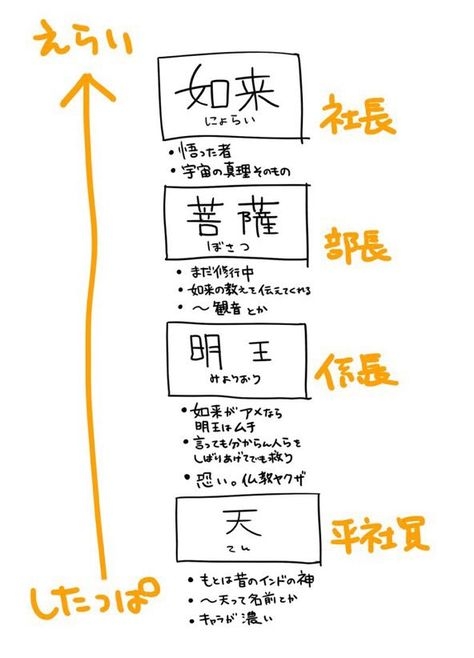 えらい
如来
にょらい
社長
・悟った者
・宇宙の真理そのもの
菩薩
ぼさつ
部長
・まだ修行中
・如来の教えを伝えてくれる
・～観音とか
明王
みょうおう
係長
・如来がアメなら
明王はムチ
・言っても分からん人らを
しばりあげてでも救う
・恐い。仏教ヤクザ
天
てん
平社員
・もとは昔のインドの神
・～天って名前とか
・キャラが濃い
したっぱ